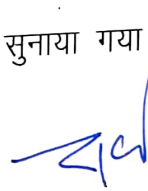 सुनाया गया